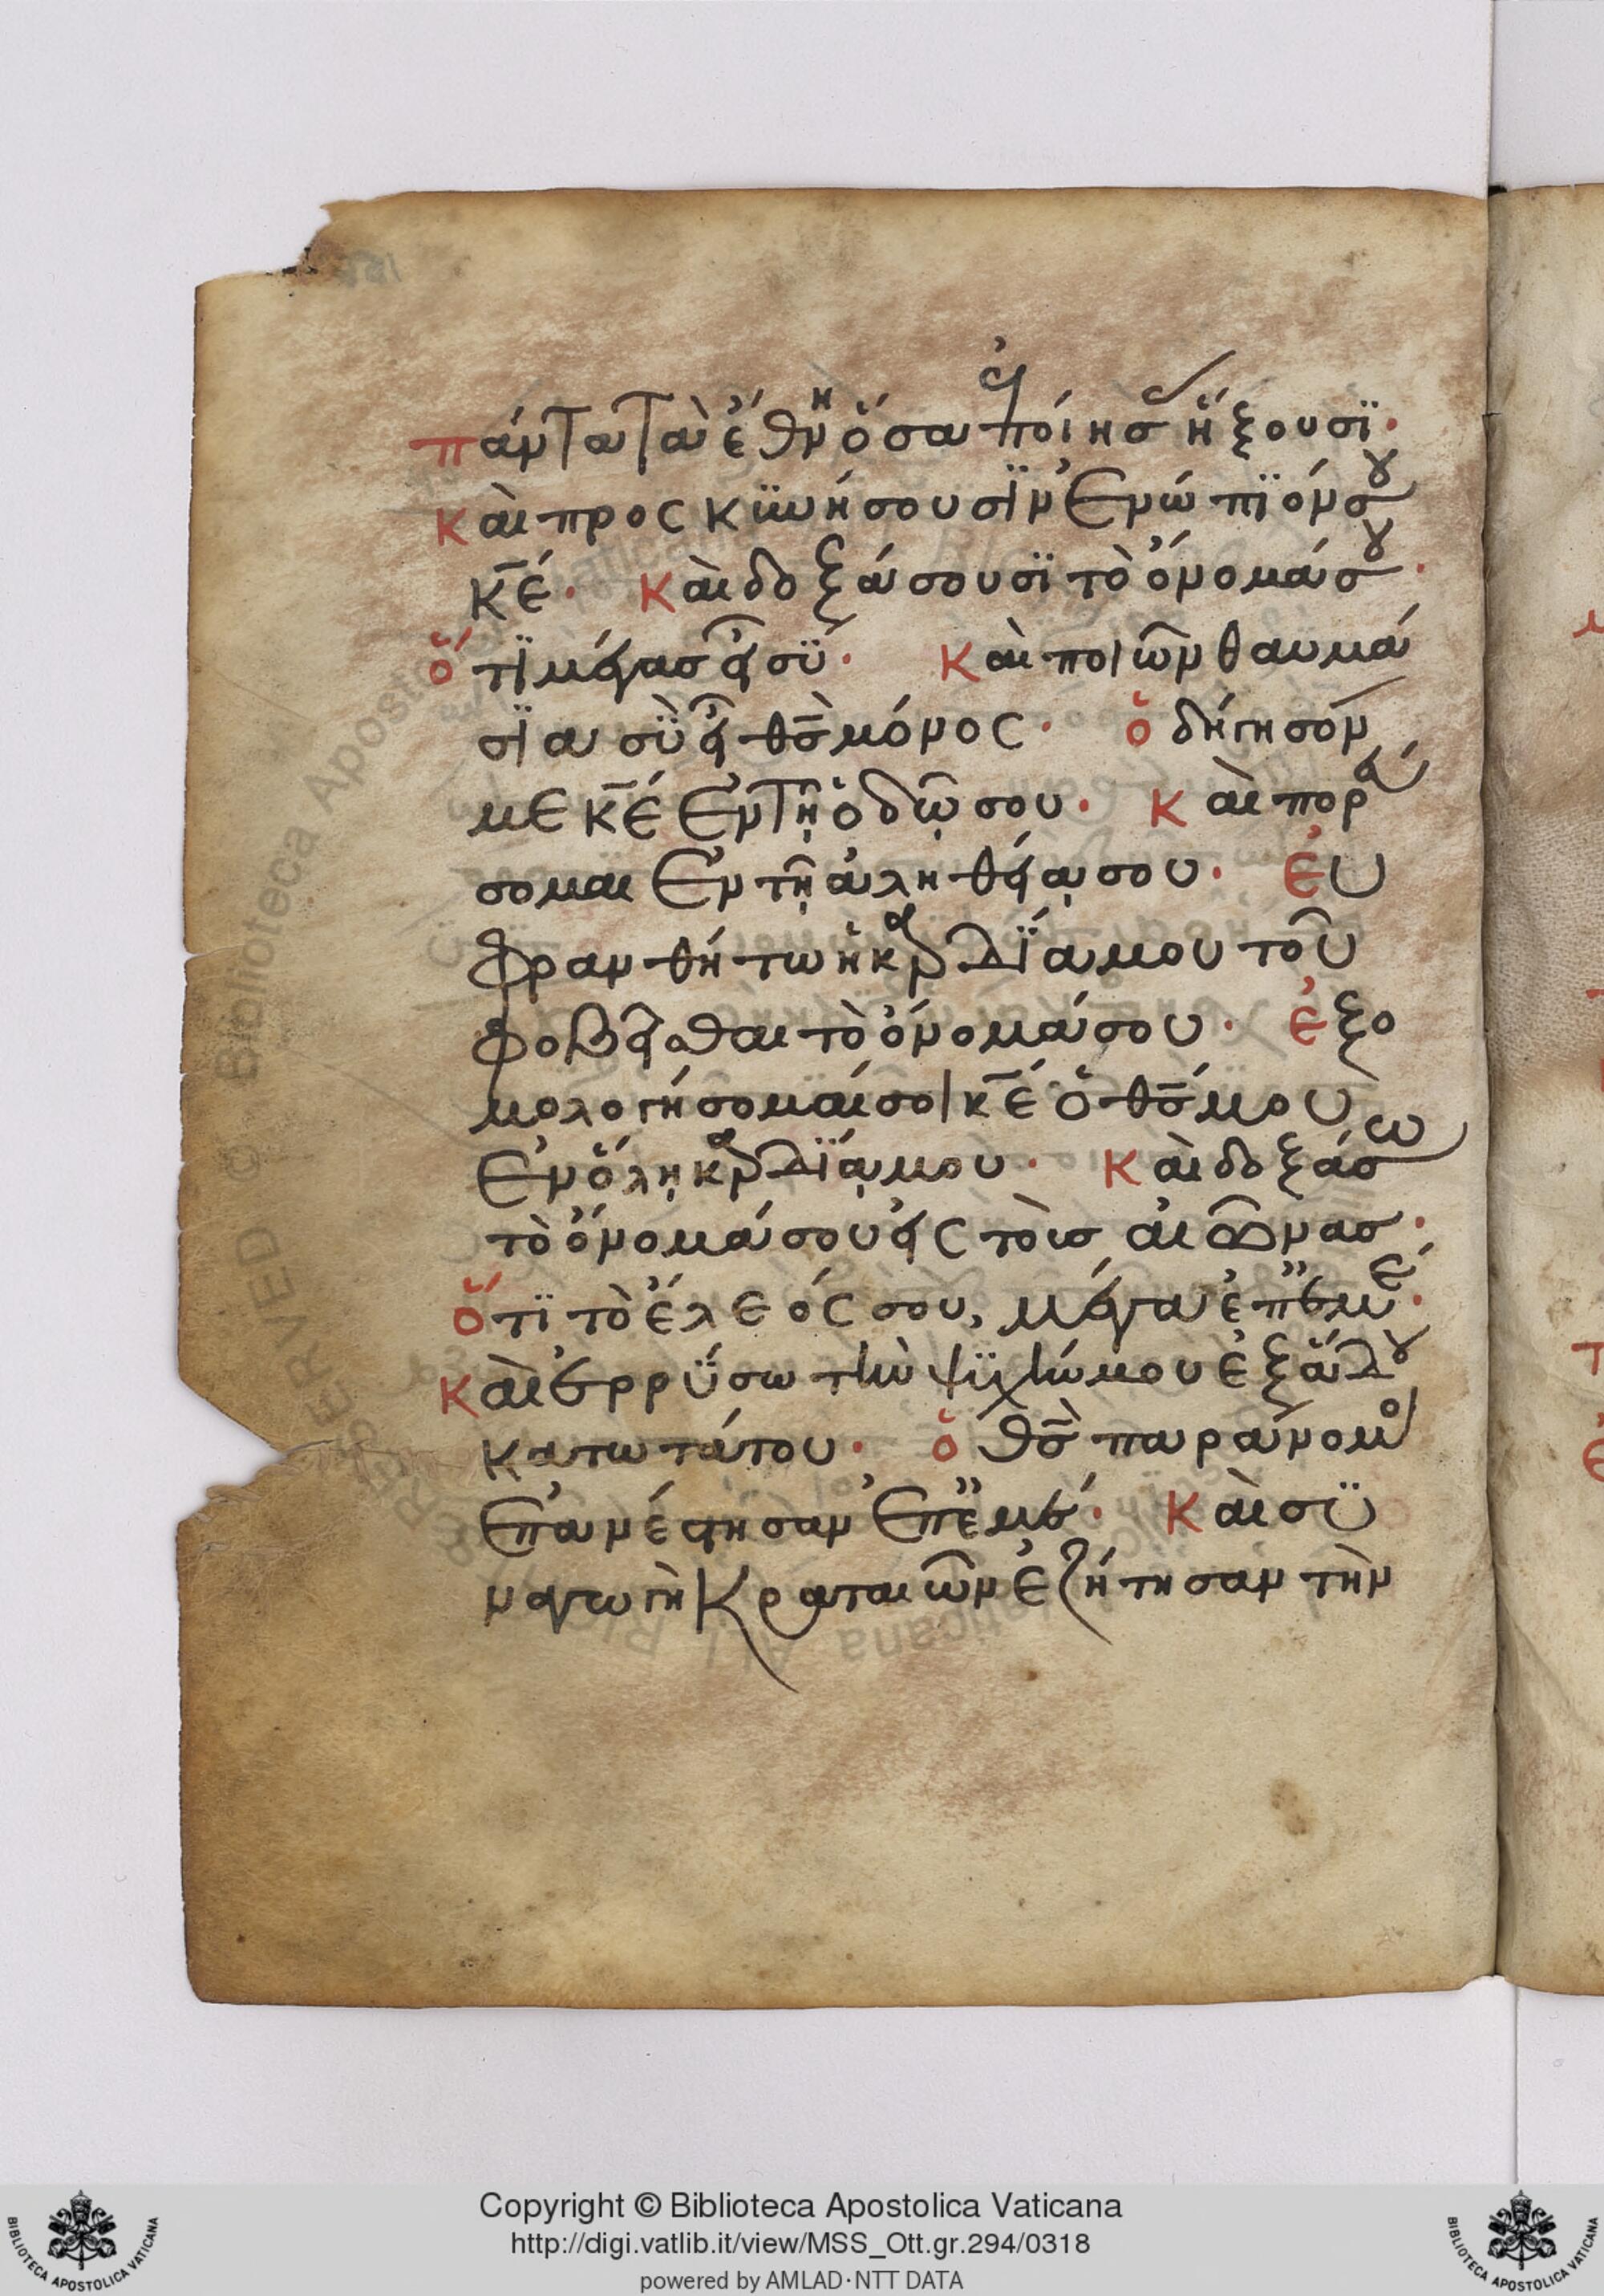 πάντα τὰ ἔθνη ὅσα ἐποίησας ἥξουσϊ·
Καὶ προσκϋνήσουσϊν ἐνώπϊόν σου
κ̅ε̅· Καὶ δοξάσουσϊ τὸ ὄνομά σου·
ὅτϊ μέγας εἶ σϋ· Καὶ ποιῶν θαυμά
σϊα σϋ εἶ θ̅ς̅ μόνος· ὁδήγησόν
με κ̅ε̅ ἐν τῇ ὁδῷ σου· Καὶ πορεύ
σομαι ἐν τῇ ἀληθείᾳ σου· ἐυ
φρανθήτω ἡ καρδΐα μου τοῦ
φοβεῖσθαι τὸ ὄνομά σου· ἐξο
μολογήσομαί σοι κ̅ε̅ ὁ θ̅ς̅ μου
ἐν ὅλῃ καρδΐᾳ μου· Καὶ δοξάσω
τὸ ὄνομά σου εἰς τὸις αἰῶνας·
ὅτϊ τὸ ἔλεός σου, μέγα ἐπ ἐμέ·
Καὶ ἐρρΰσω τὴν ψϋχήν μου ἐξ ἅδου
κατωτάτου· ὁ θ̅ς̅ παράνομοι
ἐπανέστησαν ἐπ ἐμέ· Καὶ σϋ
ναγωγὴ κραταιῶν ἐζήτησαν τὴν
Copyright © Biblioteca Apostolica Vaticana
http://digi.vatlib.it/view/MSS_Ott.gr.294/0318
powered by AMLAD·NTT DATA
BIBLIOTECA APOSTOLICA VATICANA
BIBLIOTECA APOSTOLICA VATICANA